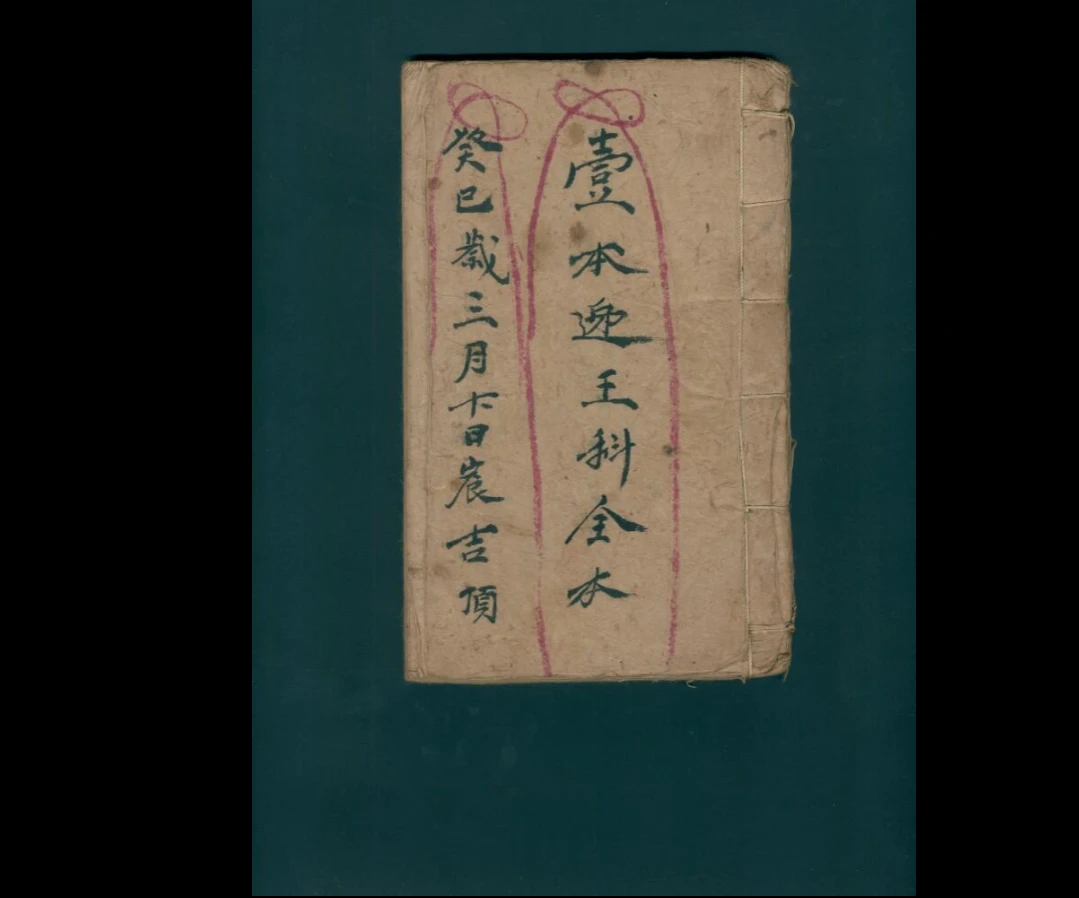 壹本迎王科全本
癸巳歲三月十日宸吉頂